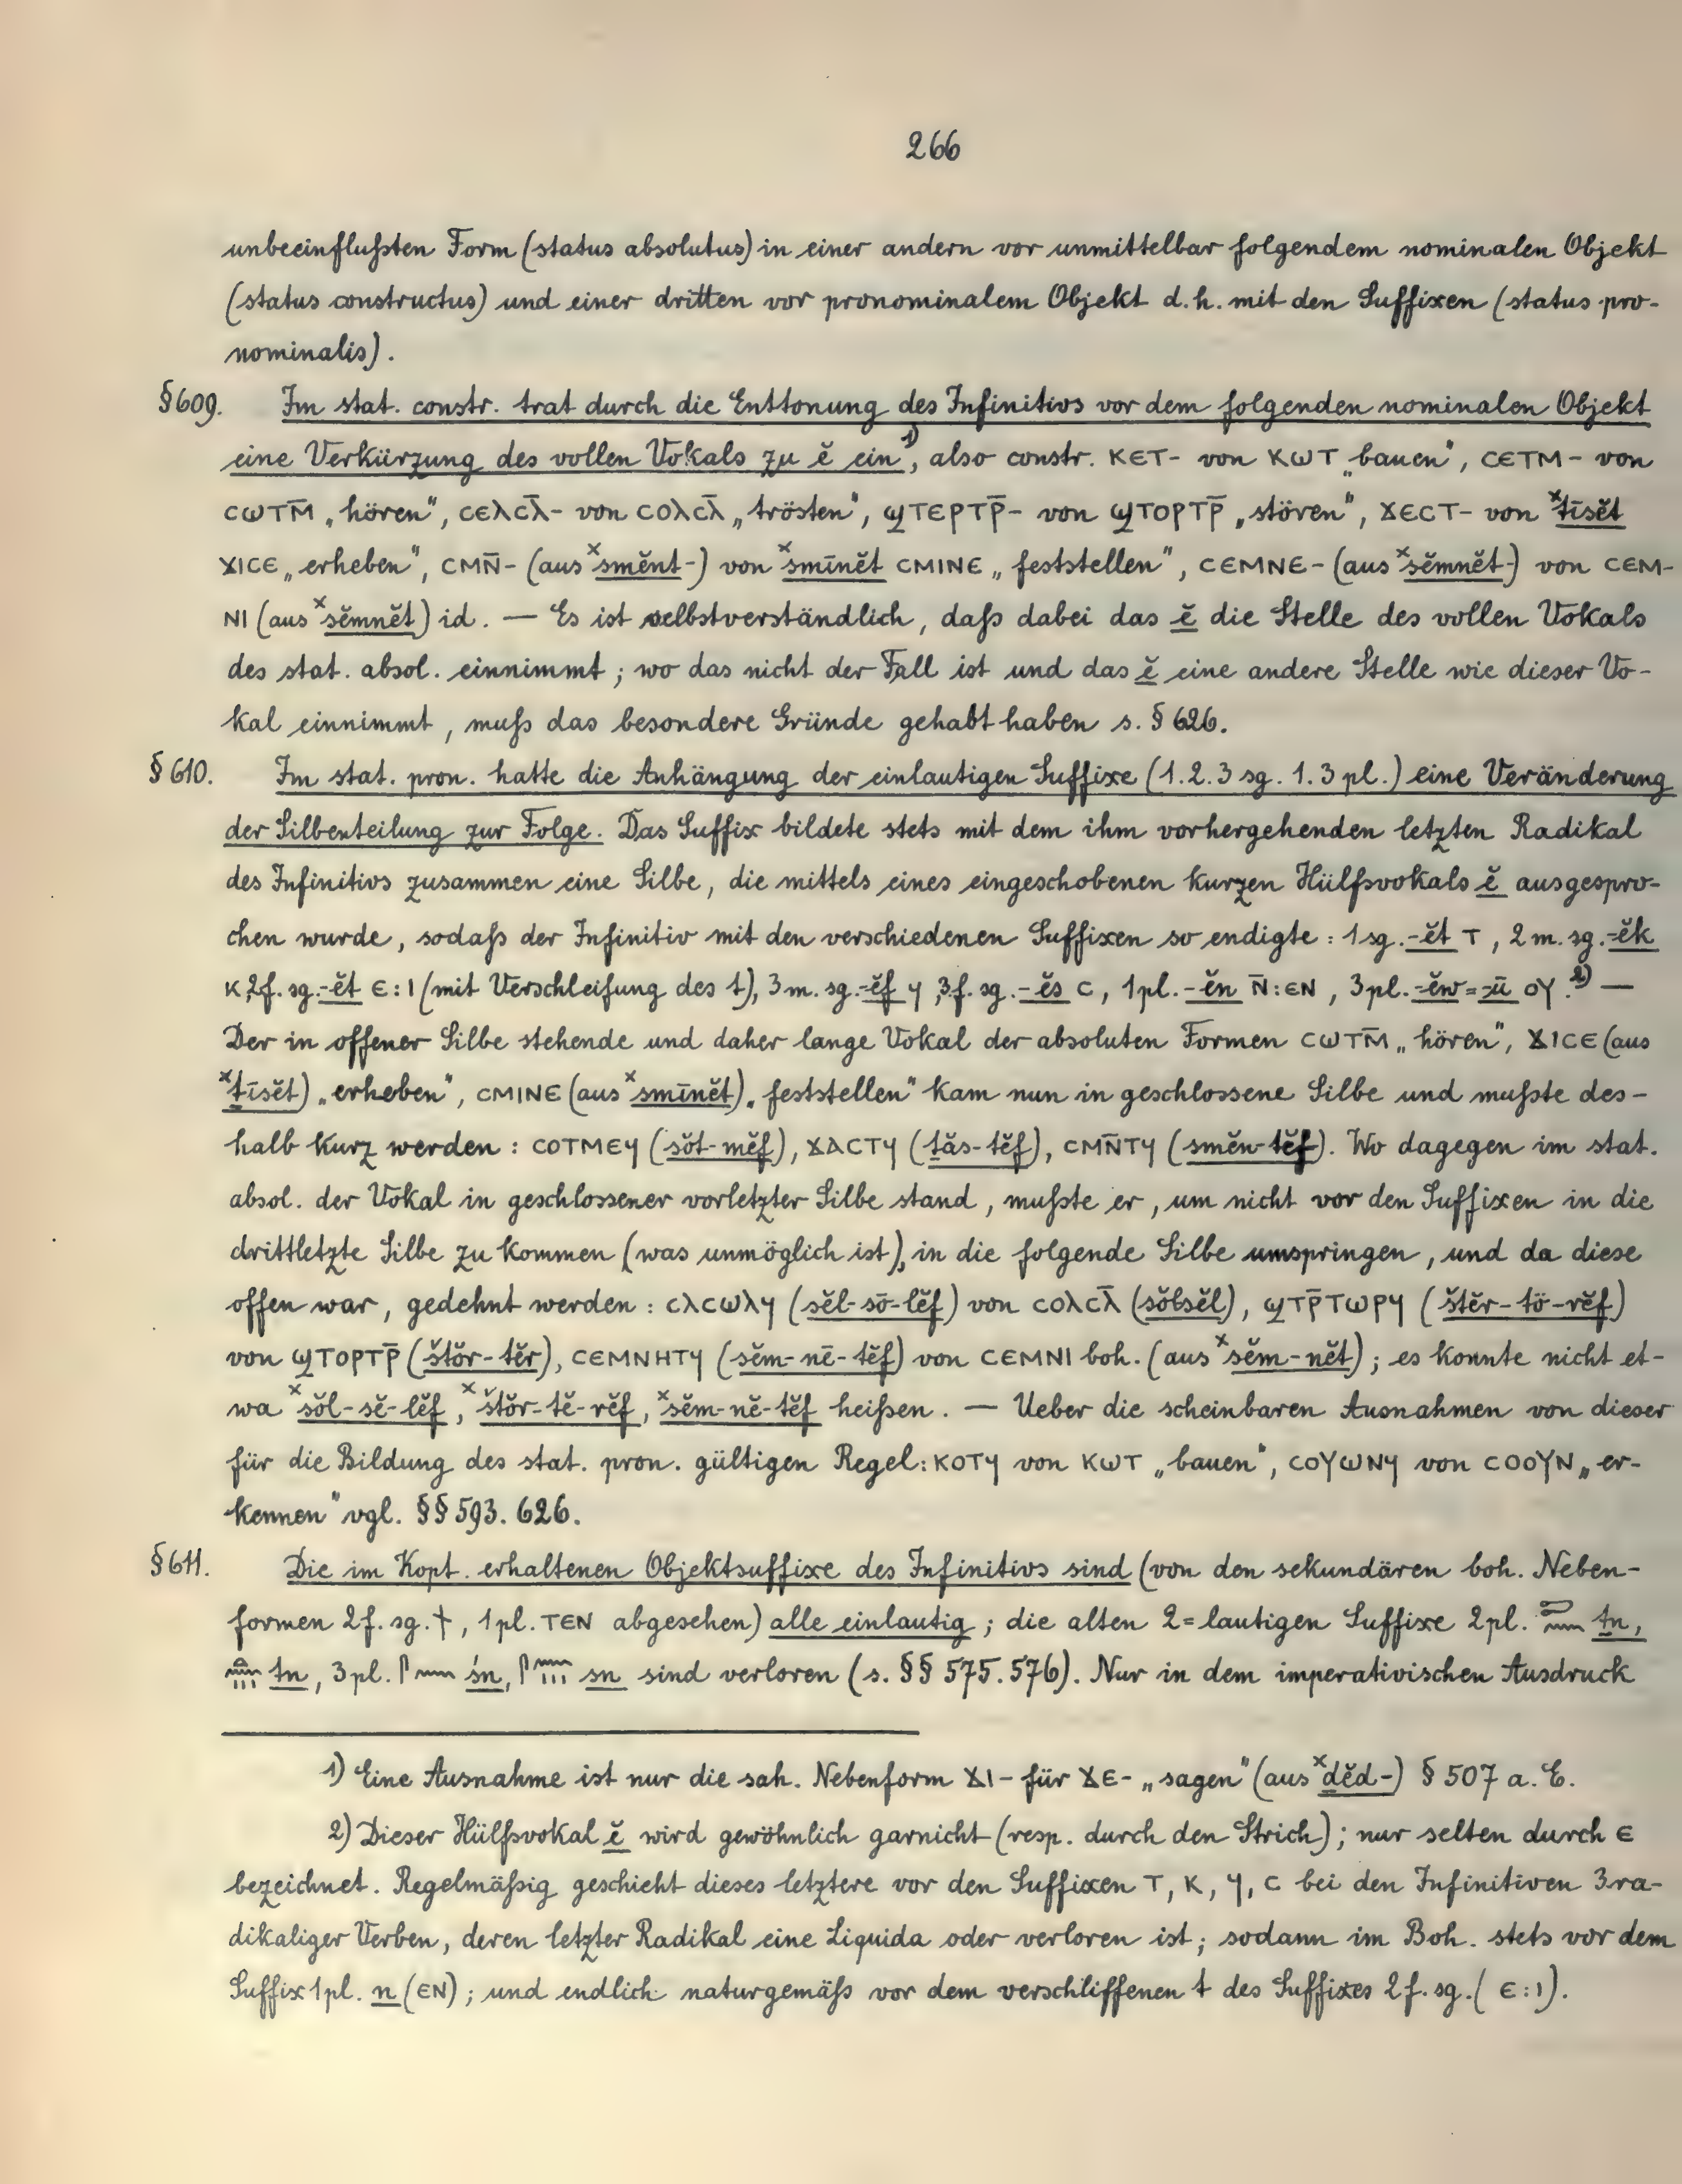 266
unbeeinflußten Form (status absolutus) in einer andern vor unmittelbar folgendem nominalen Objekt
(status constructus) und einer dritten vor pronominalem Objekt d.h. mit den Suffixen (status pro-
nominalis).
§609. Im stat. constr. trat durch die Enttonung des Infinitivs vor dem folgenden nominalen Objekt
eine Verkürzung des vollen Vokals zu ĕ ein¹⁾, also constr. ⲕⲉⲧ- von ⲕⲱⲧ „bauen“, ⲥⲉⲧⲙ- von
ⲥⲱⲧⲙ̄ „hören“, ⲥⲉⲗⲥⲗ̄- von ⲥⲟⲗⲥⲗ̄ „trösten“, ϣⲧⲉⲣⲧⲣ̄- von ϣⲧⲟⲣⲧⲣ̄ „stören“, ϫⲉⲥⲧ- von ˣṯīsĕt
ϫⲓⲥⲉ „erheben“, ⲥⲙⲛ̄- (aus ˣsmĕnt-) von ˣsmīnĕt ⲥⲙⲓⲛⲉ „feststellen“, ⲥⲉⲙⲛⲉ- (aus ˣsĕmnĕt-) von ⲥⲉⲙ-
ⲛⲓ (aus ˣsĕmnĕt) id. — Es ist selbstverständlich, daß dabei das ĕ die Stelle des vollen Vokals
des stat. absol. einnimmt; wo das nicht der Fall ist und das ĕ eine andere Stelle wie dieser Vo-
kal einnimmt, muß das besondere Gründe gehabt haben s. § 626.
§ 610. Im stat. pron. hatte die Anhängung der einlautigen Suffixe (1. 2. 3 sg. 1. 3 pl.) eine Veränderung
der Silbenteilung zur Folge. Das Suffix bildete stets mit dem ihm vorhergehenden letzten Radikal
des Infinitivs zusammen eine Silbe, die mittels eines eingeschobenen kurzen Hülfsvokals ĕ ausgespro-
chen wurde, sodaß der Infinitiv mit den verschiedenen Suffixen so endigte: 1 sg. -ĕt ⲧ, 2 m. sg. -ĕk
ⲕ, 2 f. sg. -ĕt ⲉ:ⲓ (mit Verschleifung des t), 3 m. sg. -ĕf ϥ, 3 f. sg. -ĕs ⲥ, 1 pl. -ĕn ⲛ̄:ⲉⲛ, 3 pl. -ĕw = -ū ⲟⲩ.²⁾ —
Der in offener Silbe stehende und daher lange Vokal der absoluten Formen ⲥⲱⲧⲙ̄ „hören“, ϫⲓⲥⲉ (aus
ˣṯīsĕt) „erheben“, ⲥⲙⲓⲛⲉ (aus ˣsmīnĕt) „feststellen“ kam nun in geschlossene Silbe und mußte des-
halb kurz werden: ⲥⲟⲧⲙⲉϥ (sŏt-mĕf), ϫⲁⲥⲧϥ (ṯăs-tĕf), ⲥⲙⲛ̄ⲧϥ (smĕn-tĕf). Wo dagegen im stat.
absol. der Vokal in geschlossener vorletzter Silbe stand, mußte er, um nicht vor den Suffixen in die
drittletzte Silbe zu kommen (was unmöglich ist), in die folgende Silbe umspringen, und da diese
offen war, gedehnt werden: ⲥⲗⲥⲱⲗϥ (sĕl-sō-lĕf) von ⲥⲟⲗⲥⲗ̄ (sŏlsĕl), ϣⲧⲣ̄ⲧⲱⲣϥ (štĕr-tō-rĕf)
von ϣⲧⲟⲣⲧⲣ̄ (štŏr-tĕr), ⲥⲉⲙⲛⲏⲧϥ (sĕm-nē-tĕf) von ⲥⲉⲙⲛⲓ boh. (aus ˣsĕm-nĕt); es konnte nicht et-
wa ˣsŏl-sĕ-lĕf, ˣštŏr-tĕ-rĕf, ˣsĕm-nĕ-tĕf heißen. — Ueber die scheinbaren Ausnahmen von dieser
für die Bildung des stat. pron. gültigen Regel: ⲕⲟⲧϥ von ⲕⲱⲧ „bauen“, ⲥⲟⲩⲱⲛϥ von ⲥⲟⲟⲩⲛ „er-
kennen“ vgl. §§ 593. 626.
§ 611. Die im Kopt. erhaltenen Objektsuffixe des Infinitivs sind (von den sekundären boh. Neben-
formen 2 f. sg. ϯ, 1 pl. ⲧⲉⲛ abgesehen) alle einlautig; die alten 2=lautigen Suffixe 2 pl. ṯn,
tn, 3 pl. śn, sn sind verloren (s. §§ 575. 576). Nur in dem imperativischen Ausdruck
1) Eine Ausnahme ist nur die sah. Nebenform ϫⲓ- für ϫⲉ- „sagen“ (aus ˣḏĕd-) § 507 a. E.
2) Dieser Hülfsvokal ĕ wird gewöhnlich garnicht (resp. durch den Strich); nur selten durch ⲉ
bezeichnet. Regelmäßig geschieht dieses letztere vor den Suffixen ⲧ, ⲕ, ϥ, ⲥ bei den Infinitiven 3ra-
dikaliger Verben, deren letzter Radikal eine Liquida oder verloren ist; sodann im Boh. stets vor dem
Suffix 1 pl. n (ⲉⲛ); und endlich naturgemäß vor dem verschliffenen t des Suffixes 2 f. sg. (ⲉ:ⲓ).